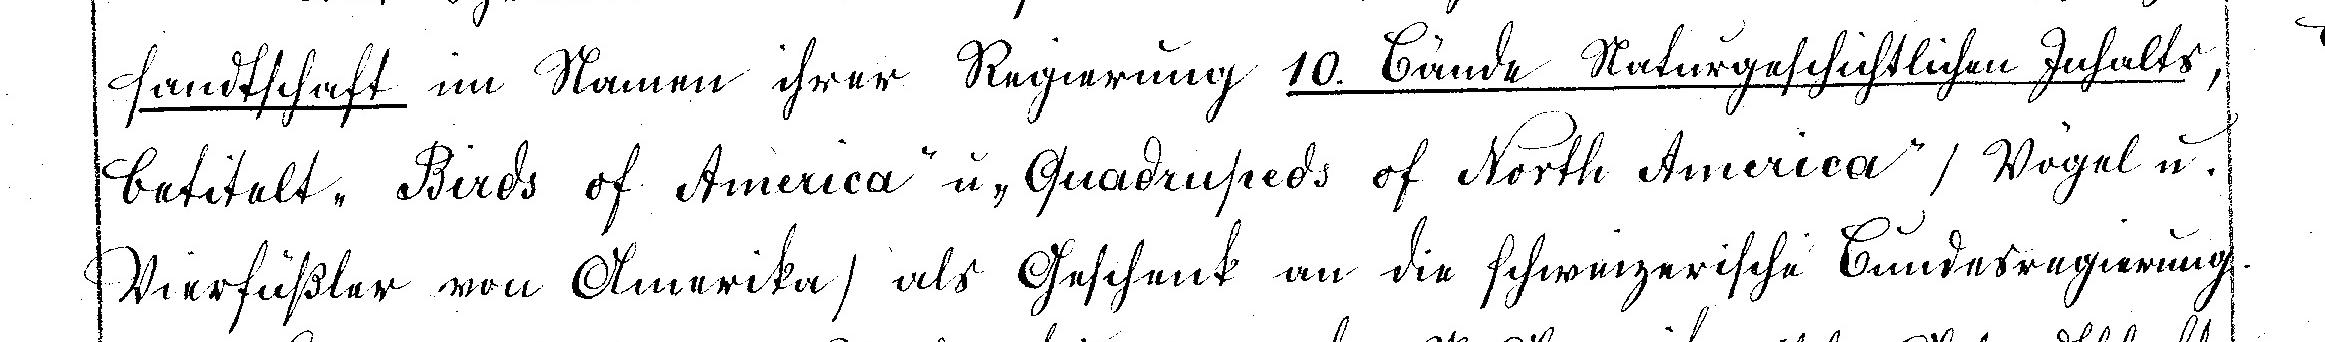 sandtschaft im Namen ihrer Regierung 10. Bände Naturgeschichtlichen Inhalts,
betitelt „Birds of America“ u „Quadrupeds of North America“ / Vögel u.
Vierfüßler von Amerika / als Geschenk an die schweizerische Bundesregierung.